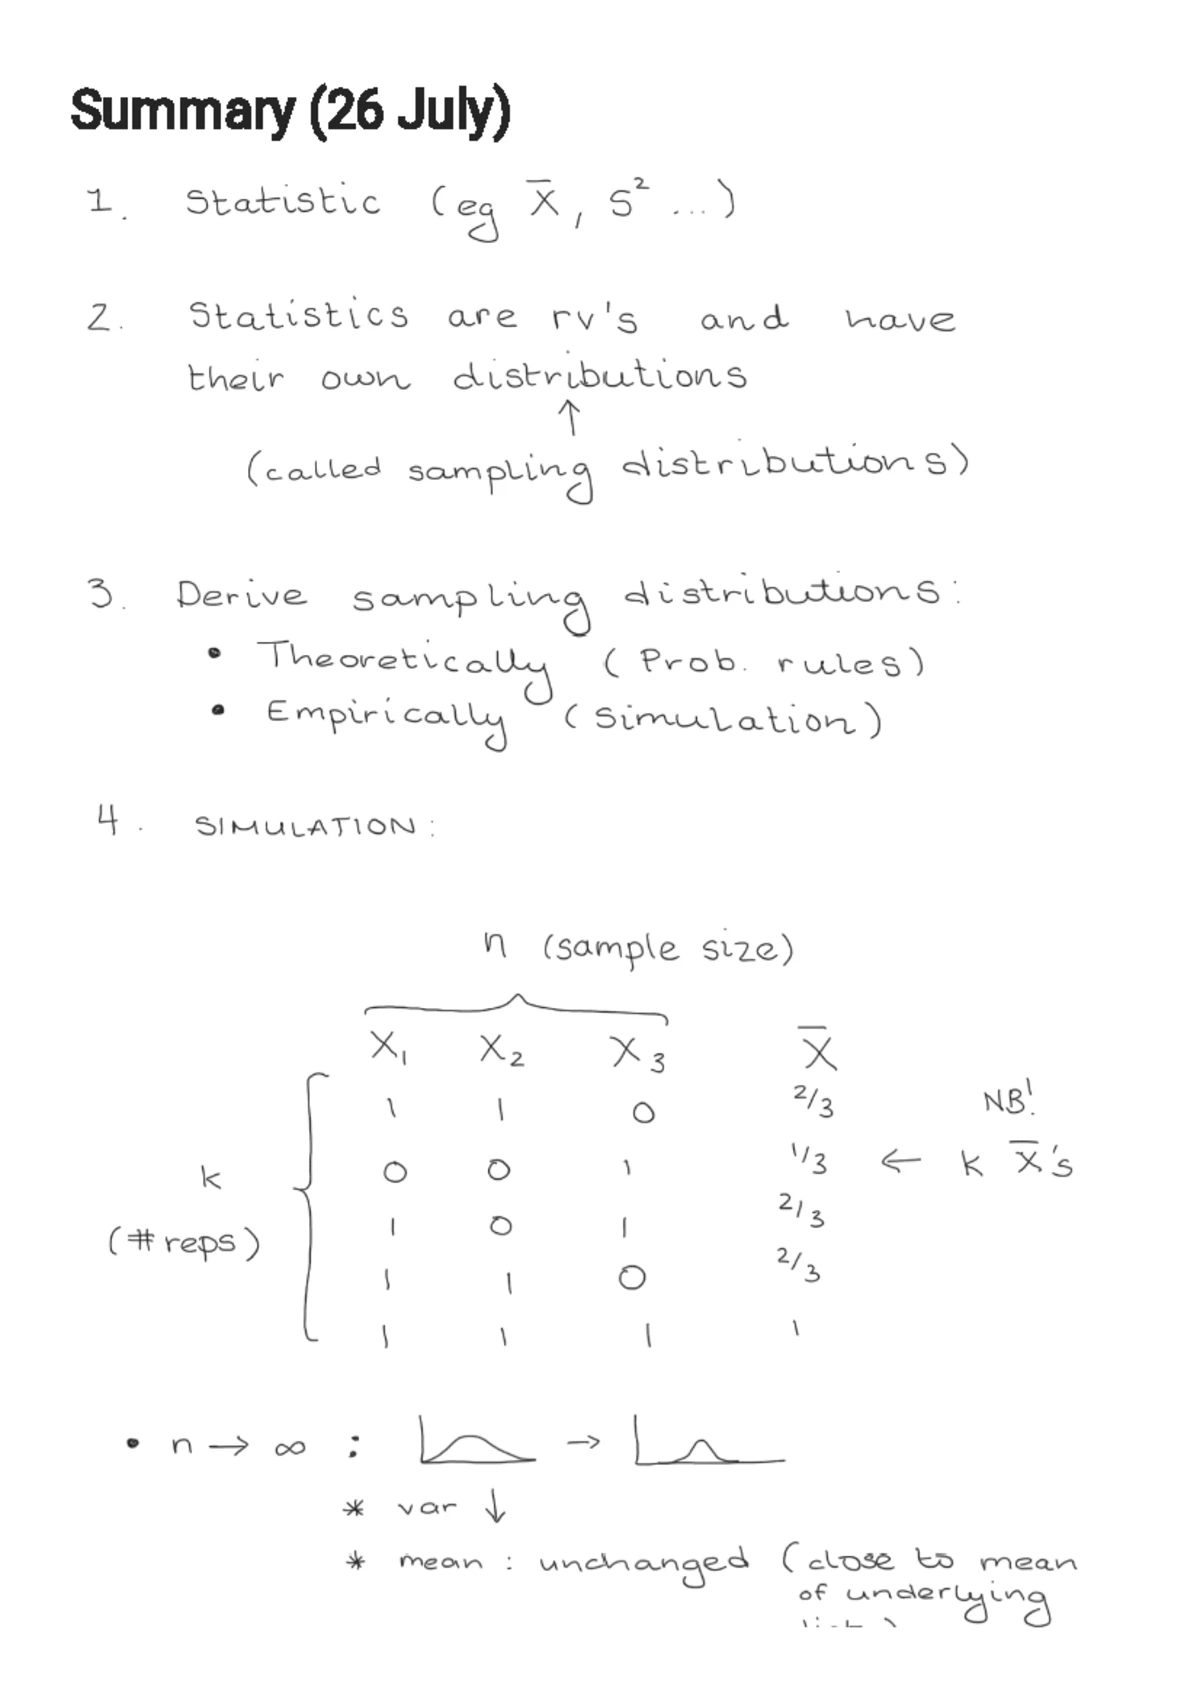 Summary (26 July)
1. Statistic (eg X̄, S² ...)
2. Statistics are rv's and have
their own distributions
↑
(called sampling distributions)
3. Derive sampling distributions:
• Theoretically (Prob. rules)
• Empirically (Simulation)
4. SIMULATION:
n (sample size)
X₁ X₂ X₃ X̄
1 1 0 2/3 NB!
0 0 1 1/3 ← k X̄'s
k
1 0 1 2/3
(# reps)
1 1 0 2/3
1 1 1 1
• n → ∞ : →
* var ↓
* mean : unchanged (close to mean
of underlying